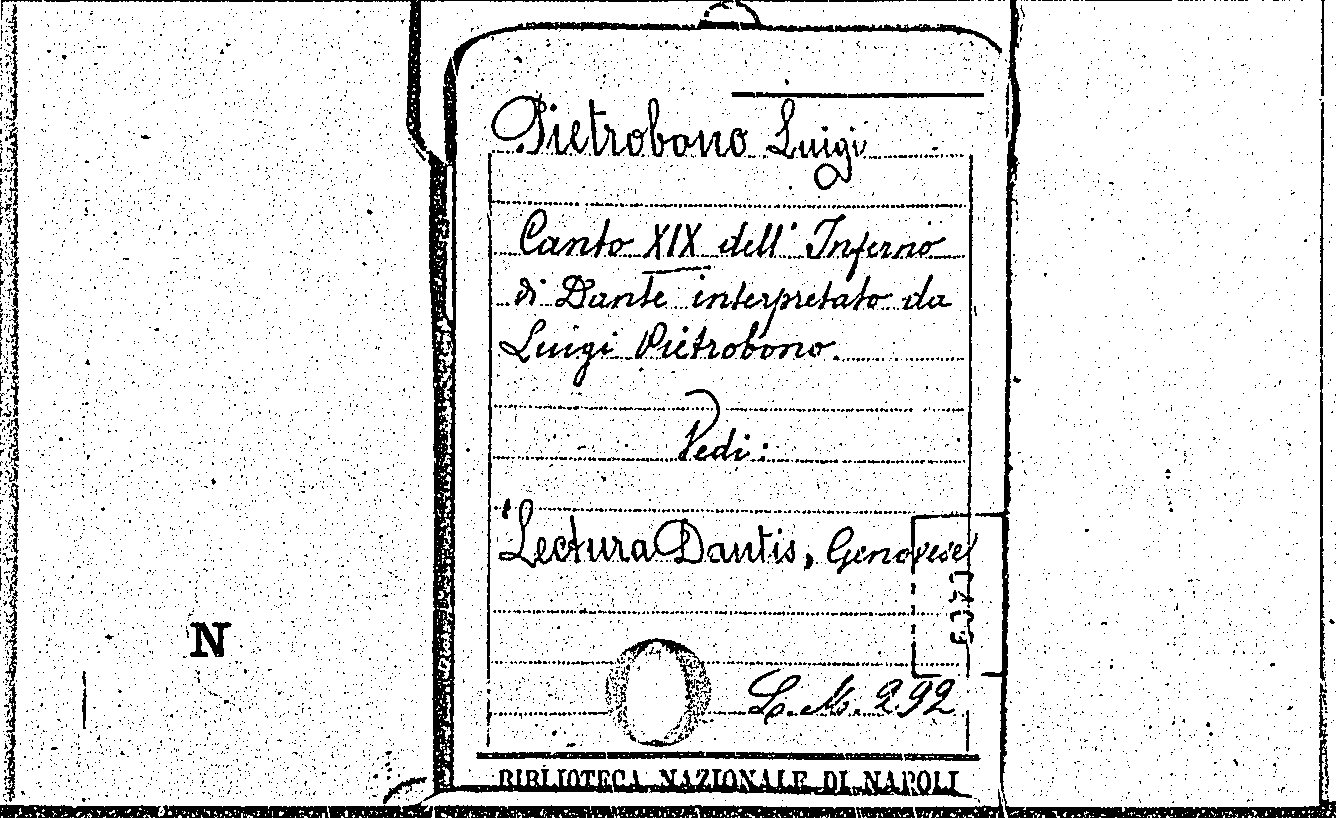 Pietrobono Luigi
Canto XIX dell' Inferno
di Dante interpretato da
Luigi Pietrobono.
Vedi:
Lectura Dantis, Genovese
N
L. M. 292
BIBLIOTECA NAZIONALE DI NAPOLI